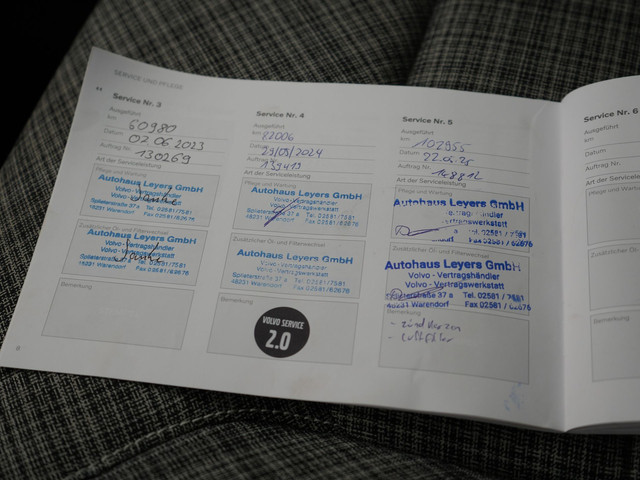 SERVICE UND PFLEGE
Service Nr. 3
Ausgeführt
km 60980
Datum 02 06 2023
Auftrag Nr. 130269
Art der Serviceleistung
Pflege und Wartung
Autohaus Leyers GmbH
Volvo - Vertragshändler
Volvo - Vertragswerkstatt
Splieterstraße 37 a Tel. 02581/7581
48231 Warendorf Fax 02581/62676
Zusätzlicher Öl- und Filterwechsel
Autohaus Leyers GmbH
Volvo - Vertragshändler
Volvo - Vertragswerkstatt
Splieterstraße 37 a Tel. 02581/7581
48231 Warendorf Fax 02581/62676
Bemerkung
Service Nr. 4
Ausgeführt
km 82006
Datum 29/05/2024
Auftrag Nr. 139419
Art der Serviceleistung
Pflege und Wartung
Autohaus Leyers GmbH
Volvo - Vertragshändler
Volvo - Vertragswerkstatt
Splieterstraße 37 a Tel. 02581/7581
48231 Warendorf Fax 02581/62676
Zusätzlicher Öl- und Filterwechsel
Autohaus Leyers GmbH
Volvo - Vertragshändler
Volvo - Vertragswerkstatt
Splieterstraße 37 a Tel. 02581/7581
48231 Warendorf Fax 02581/62676
Bemerkung
VOLVO SERVICE
2.0
Service Nr. 5
Ausgeführt
km 102955
Datum 22.05.25
Auftrag Nr. 148812
Art der Serviceleistung
Pflege und Wartung
Autohaus Leyers GmbH
Tel. 02581/7581
48231 Warendorf Fax 02581/62676
Zusätzlicher Öl- und Filterwechsel
Autohaus Leyers GmbH
Volvo - Vertragshändler
Volvo - Vertragswerkstatt
Splieterstraße 37 a Tel. 02581/7581
48231 Warendorf Fax 02581/62676
Bemerkung
- Zündkerzen
- Luftfilter
Service Nr. 6
Ausgeführt
km
Datum
Auftrag Nr.
Art der Serviceleist
Pflege und Wartung
Zusätzlicher Öl- und
Bemerkung